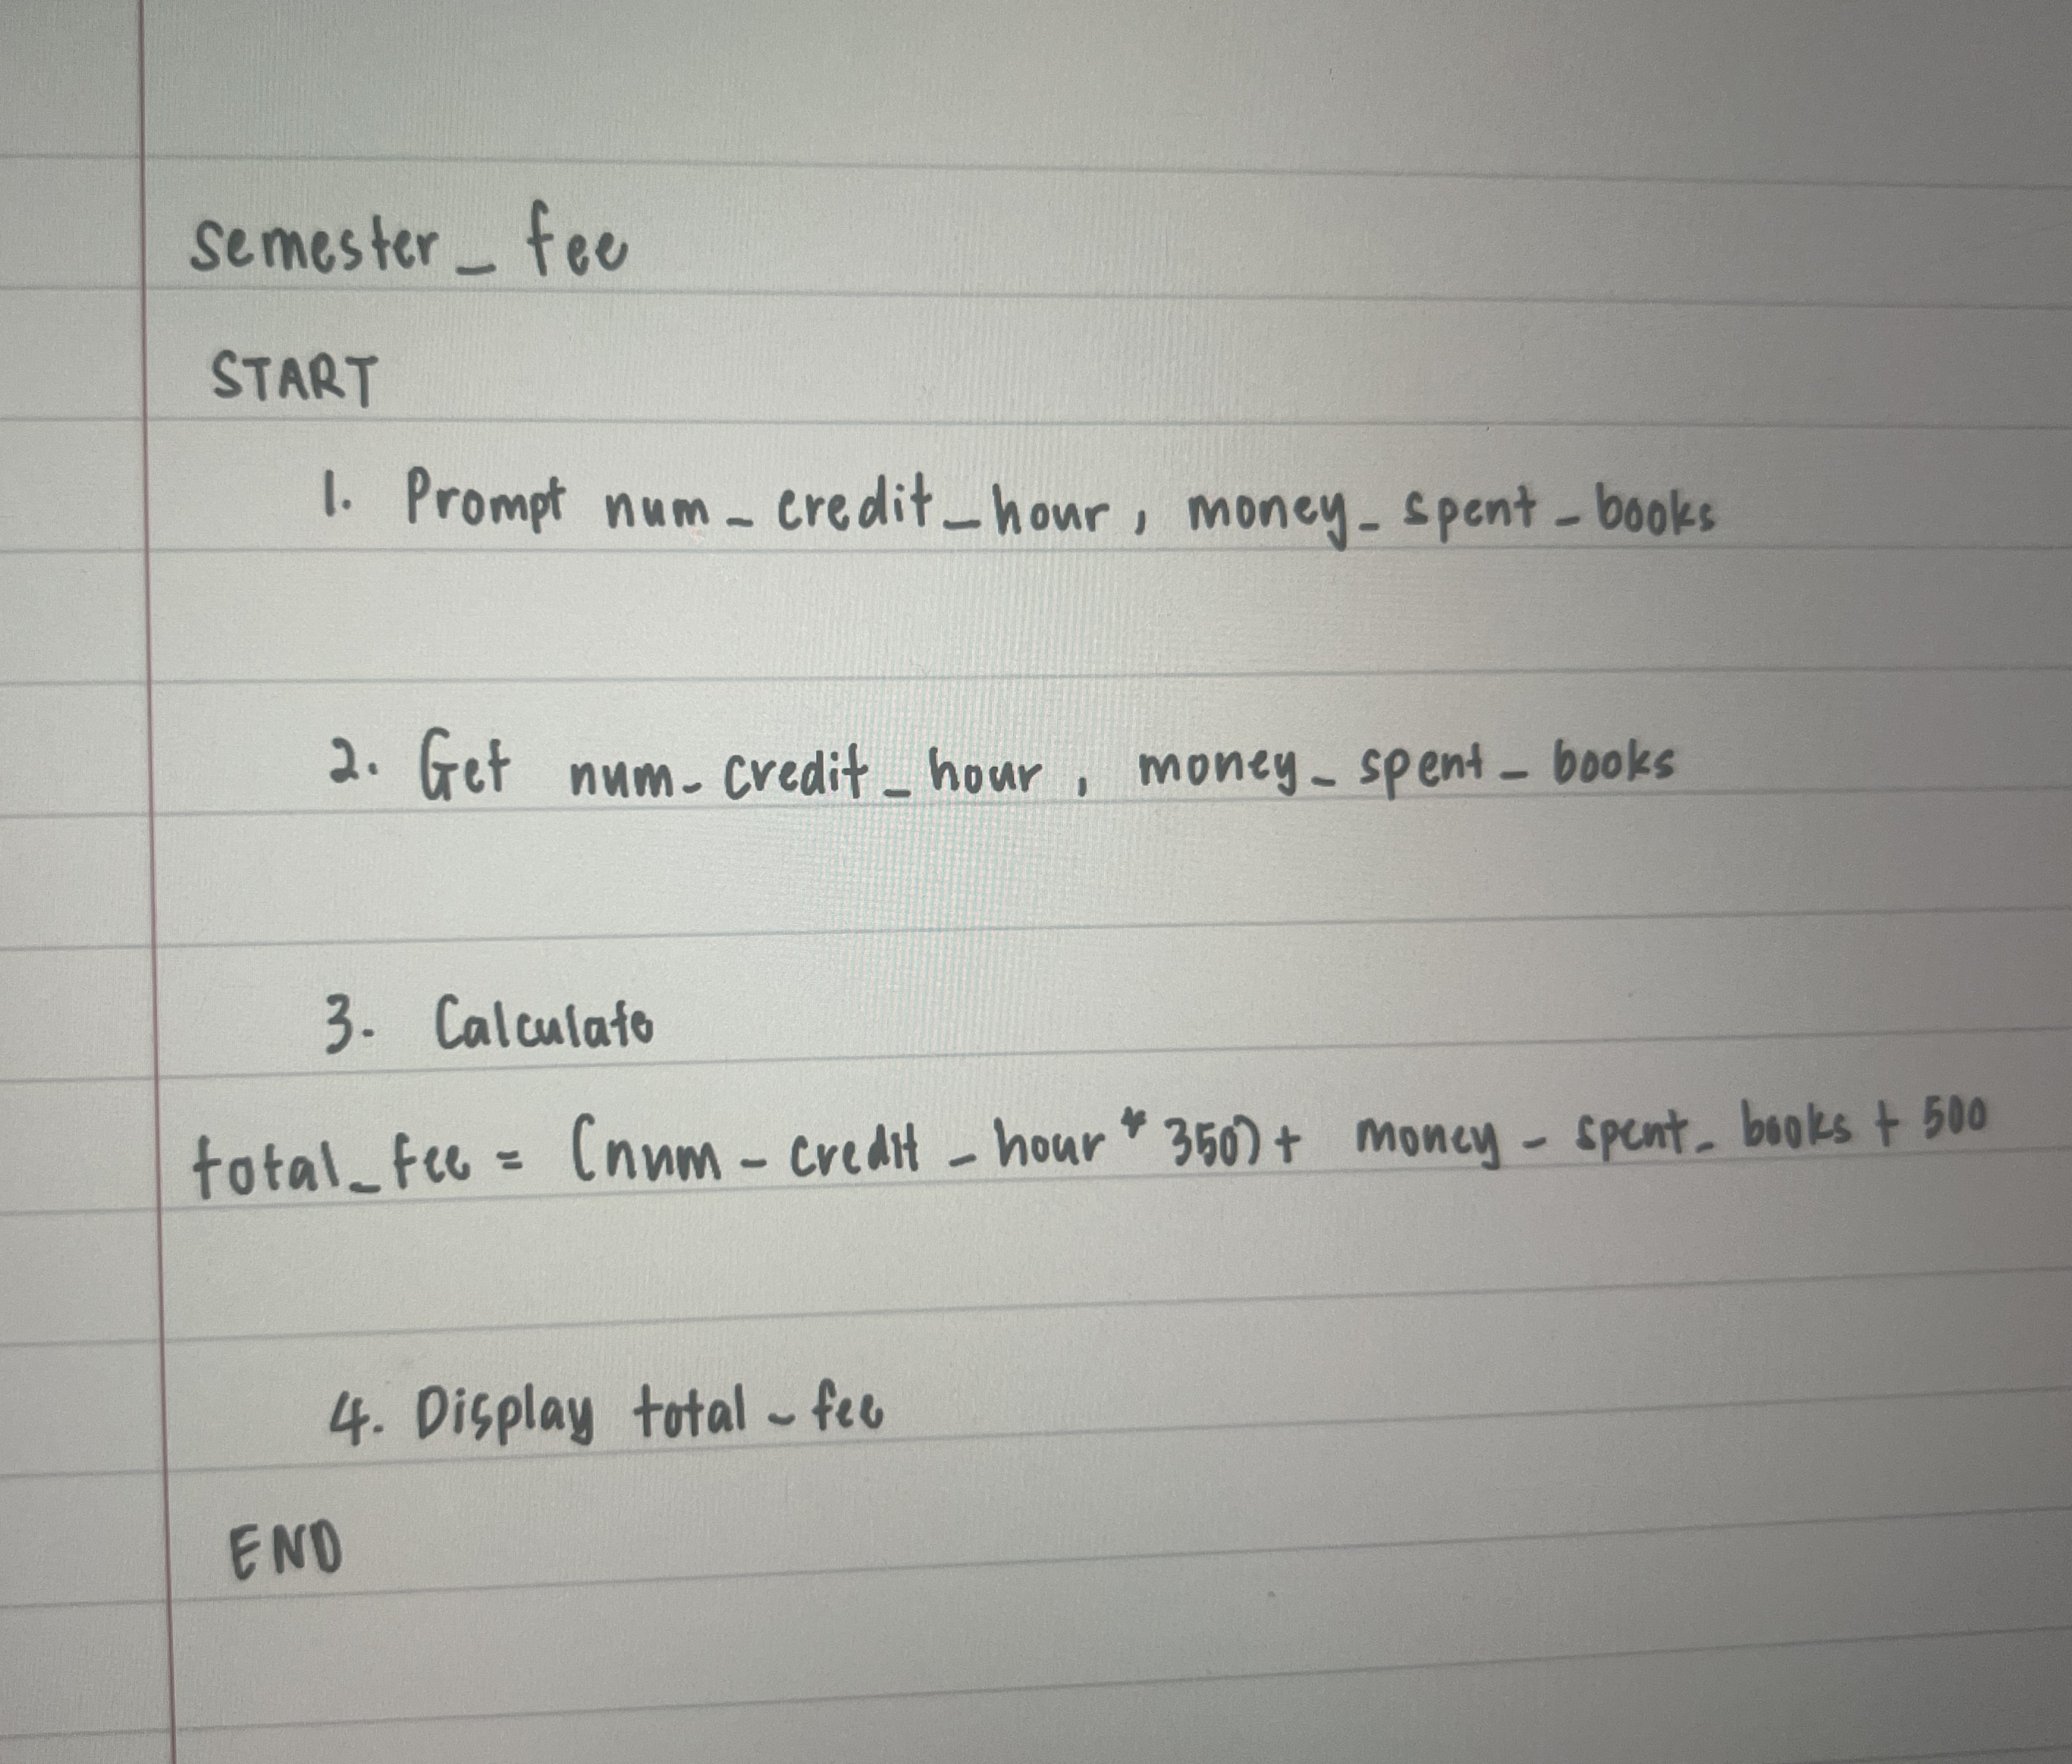 semester_fee
START
1. Prompt num_credit_hour, money_spent_books
2. Get num_credit_hour, money_spent_books
3. Calculate
total_fee = (num_credit_hour * 350) + money_spent_books + 500
4. Display total_fee
END